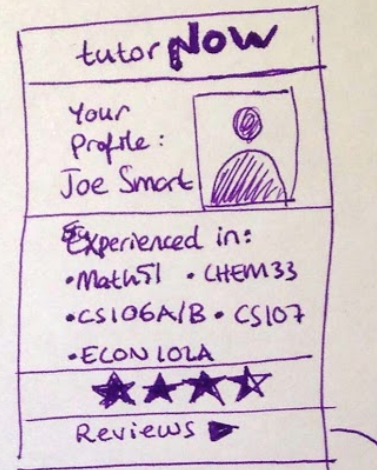 tutor Now
Your
Profile:
Joe Smart
Experienced in:
•Math51 •CHEM33
•CS106A/B •CS107
•ECON 102A
Reviews